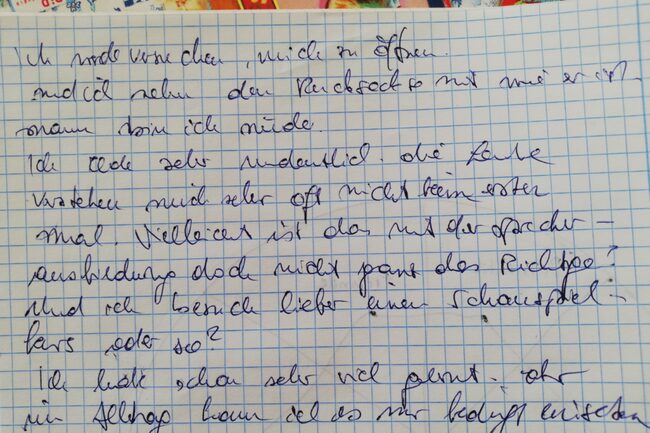 Ich werde versuchen, mich zu öffnen.
und ich sehe den Rückfach so mit wie er ist.
mann bin ich müde.
Ich rede sehr undeutlich. die Leute
verstehen mich sehr oft nicht beim ersten
mal. Vielleicht ist das mit der Sprecher –
ausbildung doch nicht ganz das Richtige?
Und ich besuch lieber einen Schauspiel –
kurs oder so?
Ich hab schon sehr viel gelernt. aber
im Alltag kann ich es nur bedingt